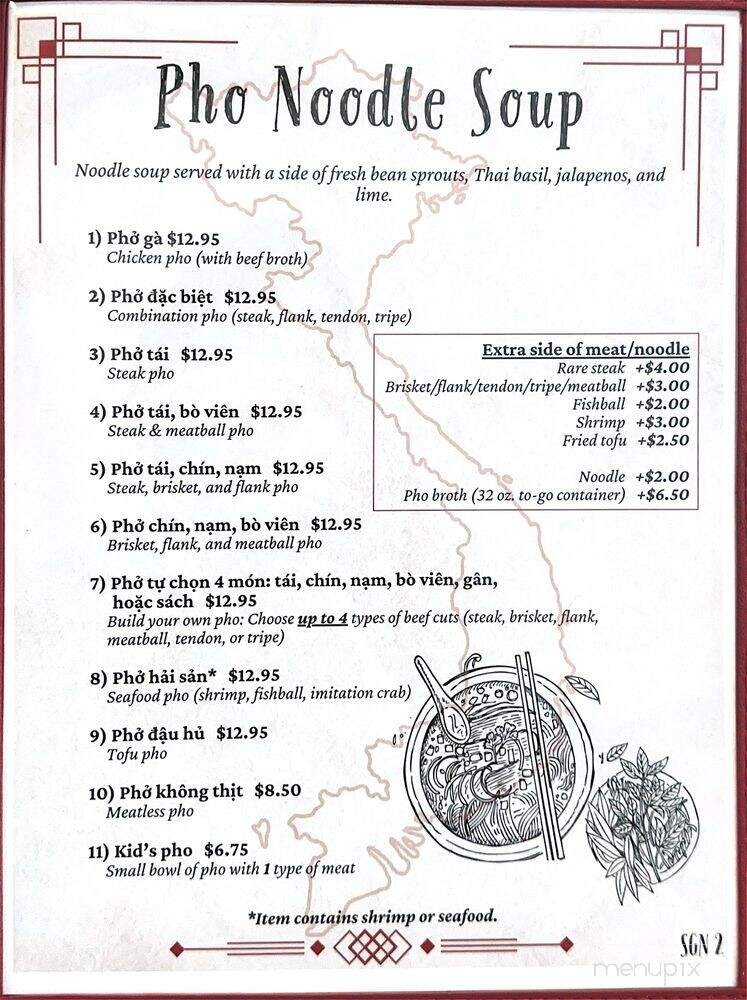 Pho Noodle Soup
Noodle soup served with a side of fresh bean sprouts, Thai basil, jalapenos, and
lime.
1) Phở gà $12.95
Chicken pho (with beef broth)
2) Phở đặc biệt $12.95
Combination pho (steak, flank, tendon, tripe)
3) Phở tái $12.95
Steak pho
4) Phở tái, bò viên $12.95
Steak & meatball pho
5) Phở tái, chín, nạm $12.95
Steak, brisket, and flank pho
6) Phở chín, nạm, bò viên $12.95
Brisket, flank, and meatball pho
7) Phở tự chọn 4 món: tái, chín, nạm, bò viên, gân,
hoặc sách $12.95
Build your own pho: Choose up to 4 types of beef cuts (steak, brisket, flank,
meatball, tendon, or tripe)
8) Phở hải sản* $12.95
Seafood pho (shrimp, fishball, imitation crab)
9) Phở đậu hủ $12.95
Tofu pho
10) Phở không thịt $8.50
Meatless pho
11) Kid's pho $6.75
Small bowl of pho with 1 type of meat
Extra side of meat/noodle
Rare steak +$4.00
Brisket/flank/tendon/tripe/meatball +$3.00
Fishball +$2.00
Shrimp +$3.00
Fried tofu +$2.50
Noodle +$2.00
Pho broth (32 oz. to-go container) +$6.50
*Item contains shrimp or seafood.
SGN 2
menupix